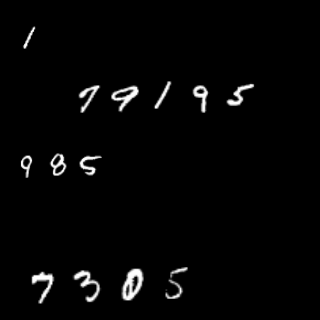 1
79195
985
7305